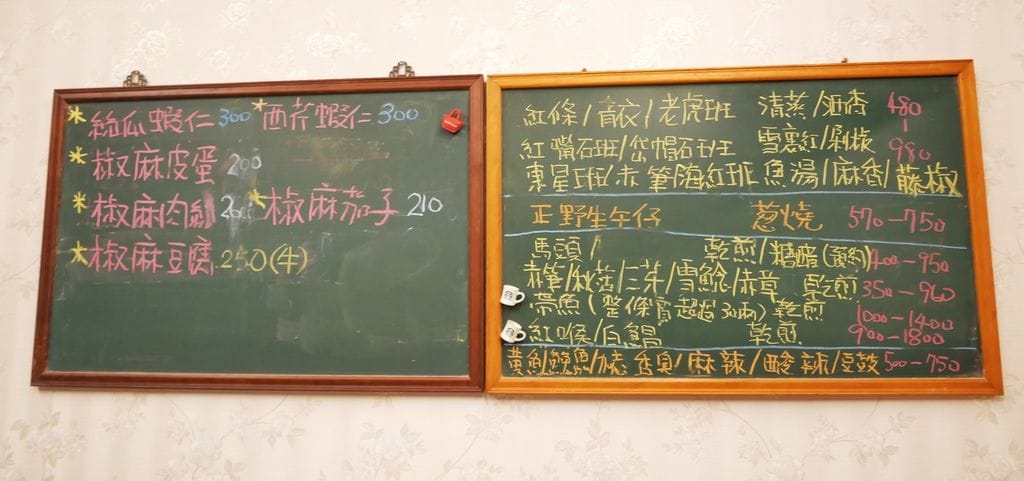 絲瓜蝦仁300 西芹蝦仁300
椒麻皮蛋 200
椒麻肉絲 200 椒麻茄子 210
椒麻豆腐 250(牛)
紅條/青衣/老虎班 清蒸/酒香 480
紅嘴石班/玳帽石班 雪裏紅/剁椒 980
東星班/赤筆海紅班 魚湯/麻香/藤椒
正野生午仔 蔥燒 570-750
馬頭/ 乾煎/糖醋(預約) 400-950
赤筆/秋落/三芽/雪鯰/赤章 乾煎 350-960
帶魚(整條需超過30兩) 乾煎 1000-1400
紅喉/白鯧 乾煎 900-1800
黃魚/鱸魚/燒 香臭/麻辣/酸辣/豆豉 500-750